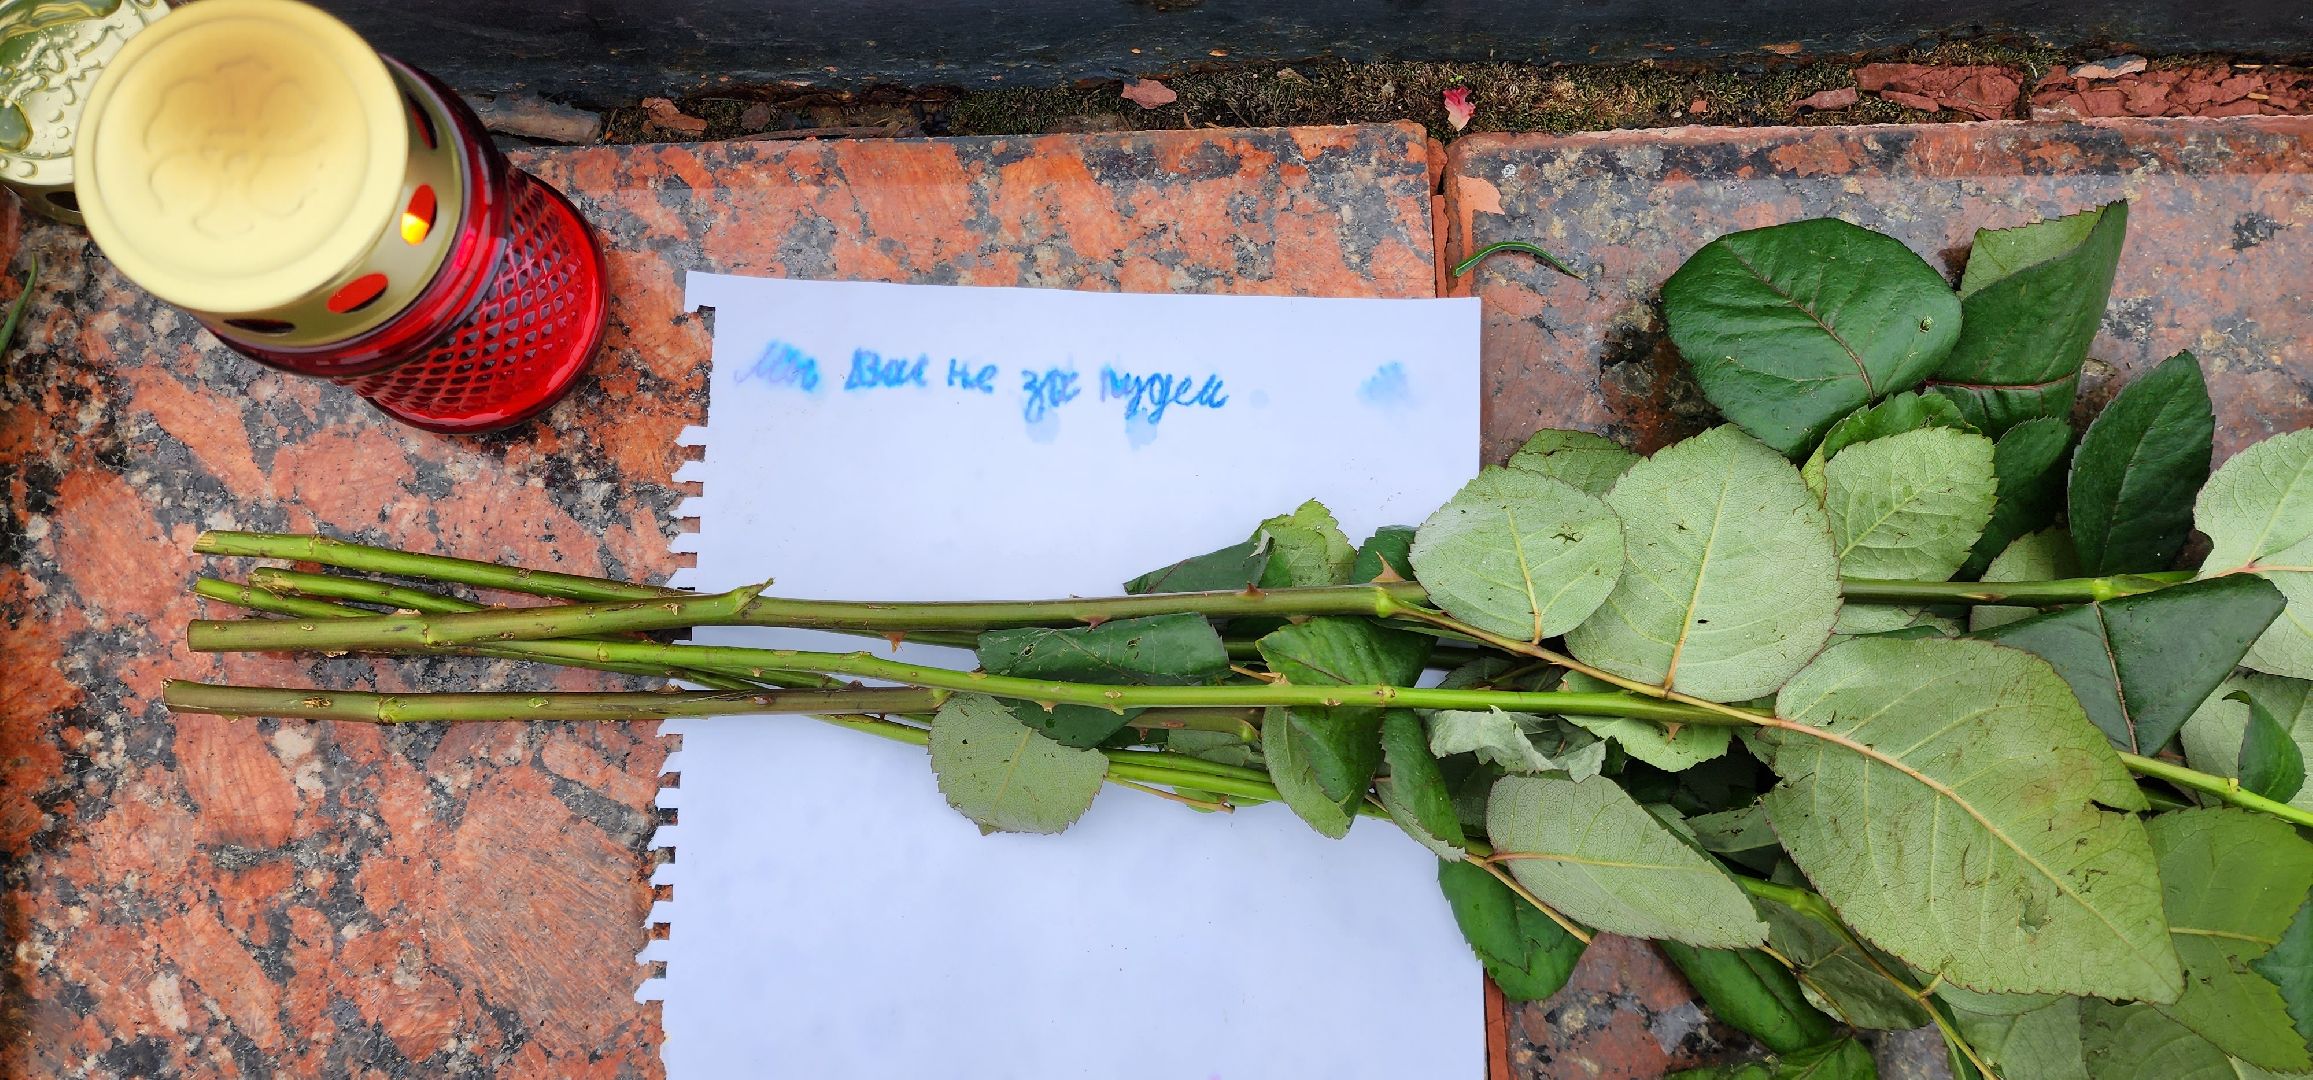 Мы Вас не за пудем